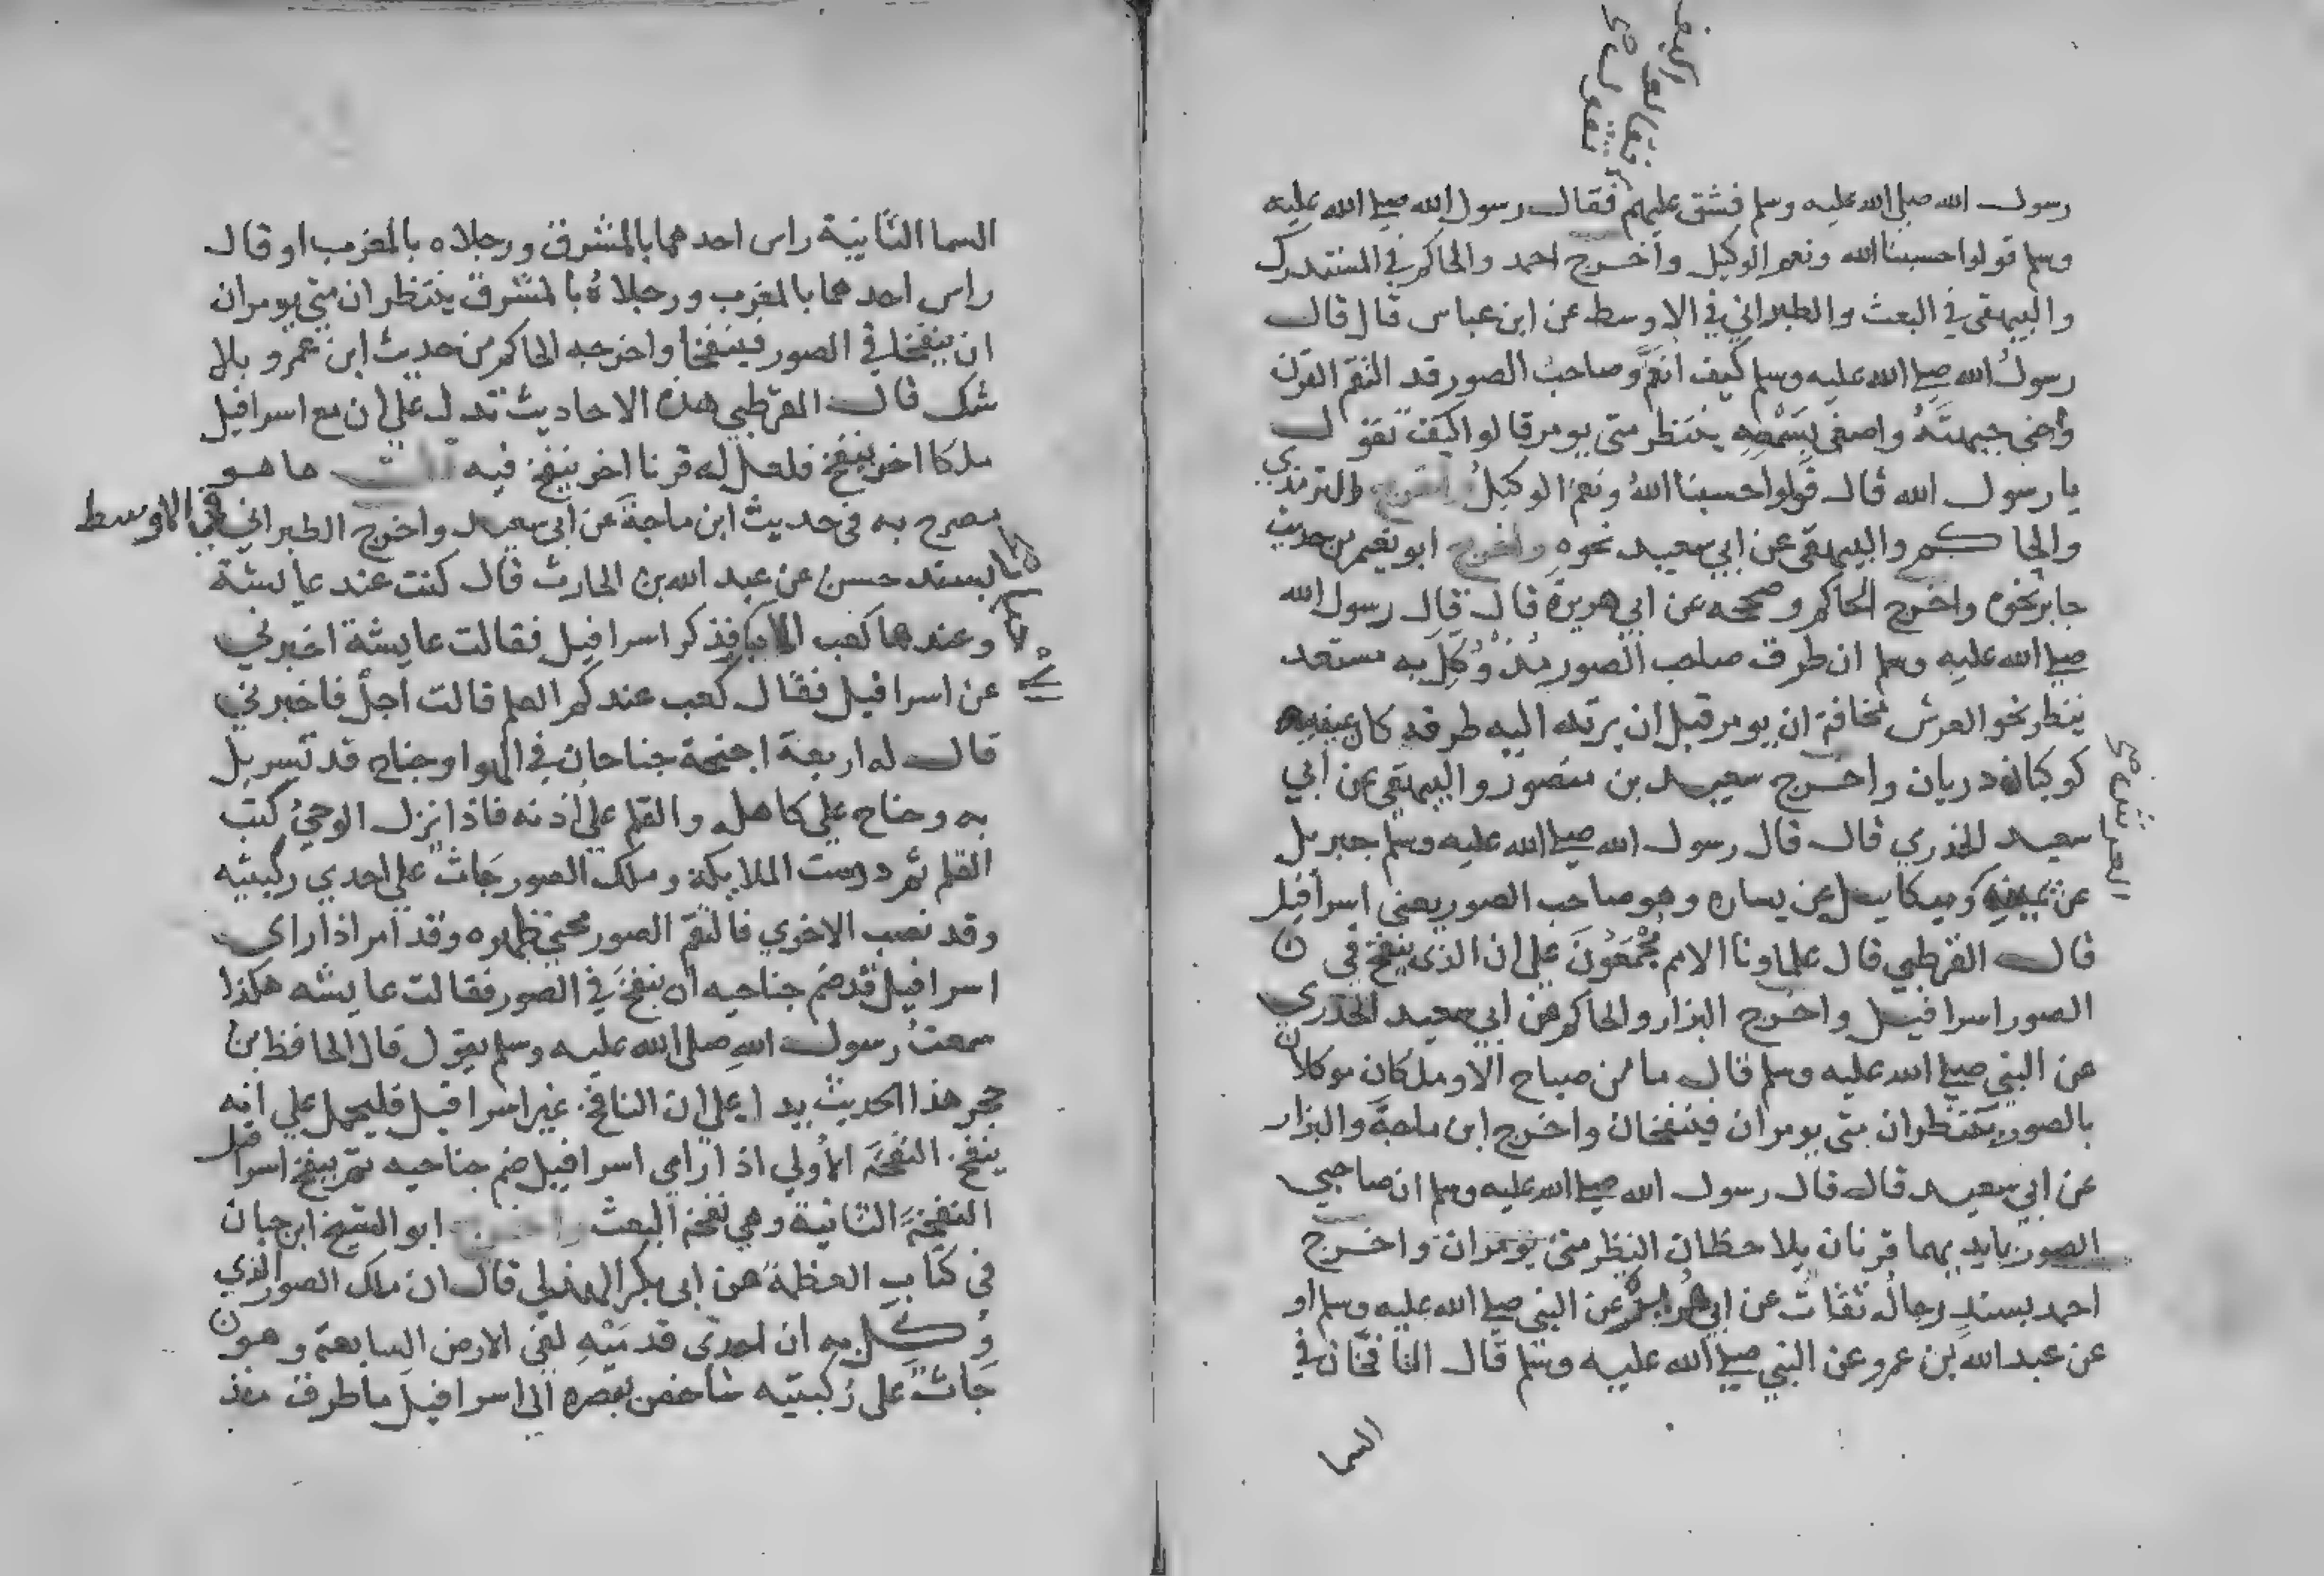 رسول الله صلى الله عليه وسلم فشق عليهم فقال رسول الله صلى الله عليه
وسلم قولوا حسبنا الله ونعم الوكيل واخرج احمد والحاكم في المستدرك
والبيهقي في البعث والطبراني في الاوسط عن ابن عباس قال قال
رسول الله صلى الله عليه وسلم كيف انعم وصاحب الصور قد التقم القرن
وأحنى جبهته واصغى بسمعه ينتظر متى يومر قالوا كيف نقول
يا رسول الله قال قولوا حسبنا الله ونعم الوكيل واخرج الترمذي
والحاكم والبيهقي عن ابي سعيد نحوه واخرج ابو نعيم من حديث
جابر نحوه واخرج الحاكم وصححه عن ابي هريرة قال قال رسول الله
صلى الله عليه وسلم ان طرف صاحب الصور مذ وكل به مستعد
ينظر نحو العرش مخافة ان يومر قبل ان يرتد اليه طرفه كان عينيه
كوكبان دريان واخرج سعيد بن منصور والبيهقي عن ابي
سعيد الخدري قال قال رسول الله صلى الله عليه وسلم جبريل
عن يمينه وميكاييل عن يساره وهو صاحب الصور يعني اسرافيل
قال القرطبي قال علماونا الامم مجمعون على ان الذي ينفخ في
الصور اسرافيل واخرج البزار والحاكم عن ابي سعيد الخدري
عن النبي صلى الله عليه وسلم قال ما من صباح الا وملكان موكلان
بالصور ينتظران متى يومران فينفخان واخرج ابن ماجة والبزار
عن ابي سعيد قال قال رسول الله صلى الله عليه وسلم ان صاحبي
الصور بايديهما قرنان يلاحظان النظر متى يومران واخرج
احمد بسند رجاله ثقات عن ابي عن النبي صلى الله عليه وسلم او
عن عبد الله بن عمرو عن النبي صلى الله عليه وسلم قال النافخان في
السما
السما الثانية راس احدهما بالمشرق ورجلاه بالمغرب او قال
راس احدهما بالمغرب ورجلاه بالمشرق ينتظران متى يومران
ان ينفخا في الصور فينفخا واخرجه الحاكم من حديث ابن عمرو بلا
شك قال القرطبي هذه الاحاديث تدل على ان مع اسرافيل
ملكا اخر ينفخ فلعل له قرنا اخر ينفخ فيه قلت ما هو
مصرح به في حديث ابن ماجة عن ابي سعيد واخرج الطبراني في الاوسط
بسند حسن عن عبد الله بن الحارث قال كنت عند عايشة
وعندها كعب فذكر اسرافيل فقالت عايشة اخبرني
عن اسرافيل فقال كعب عندكم العلم قالت اجل فاخبرني
قال له اربعة اجنحة جناحان في الهوا وجناح قد تسربل
به وجناح على كاهله والقلم على اذنه فاذا نزل الوحي كتب
القلم ثم درست الملايكة وملك الصور جاث على احدي ركبتيه
وقد نصب الاخري فالتقم الصور محني ظهره وقد امر اذا راى
اسرافيل قد ضم جناحيه ان ينفخ في الصور فقالت عايشه هكذا
سمعت رسول الله صلى الله عليه وسلم يقول قال الحافظ بن
حجر هذا الحديث يدل على ان النافخ غير اسرافيل فليحمل على انه
ينفخ النفخة الأولي اذا راى اسرافيل ضم جناحيه ثم ينفخ اسرافيل
النفخة الثانية وهي نفخة البعث واخرج ابو الشيخ ابن حبان
في كتاب العظمة عن ابى بكر الهذلي قال ان ملك الصور الذي
وكل به ان احدى قدميه لفي الارض السابعة وهو
جاث على ركبتيه شاخص بصره الى اسرافيل ما طرف منذ